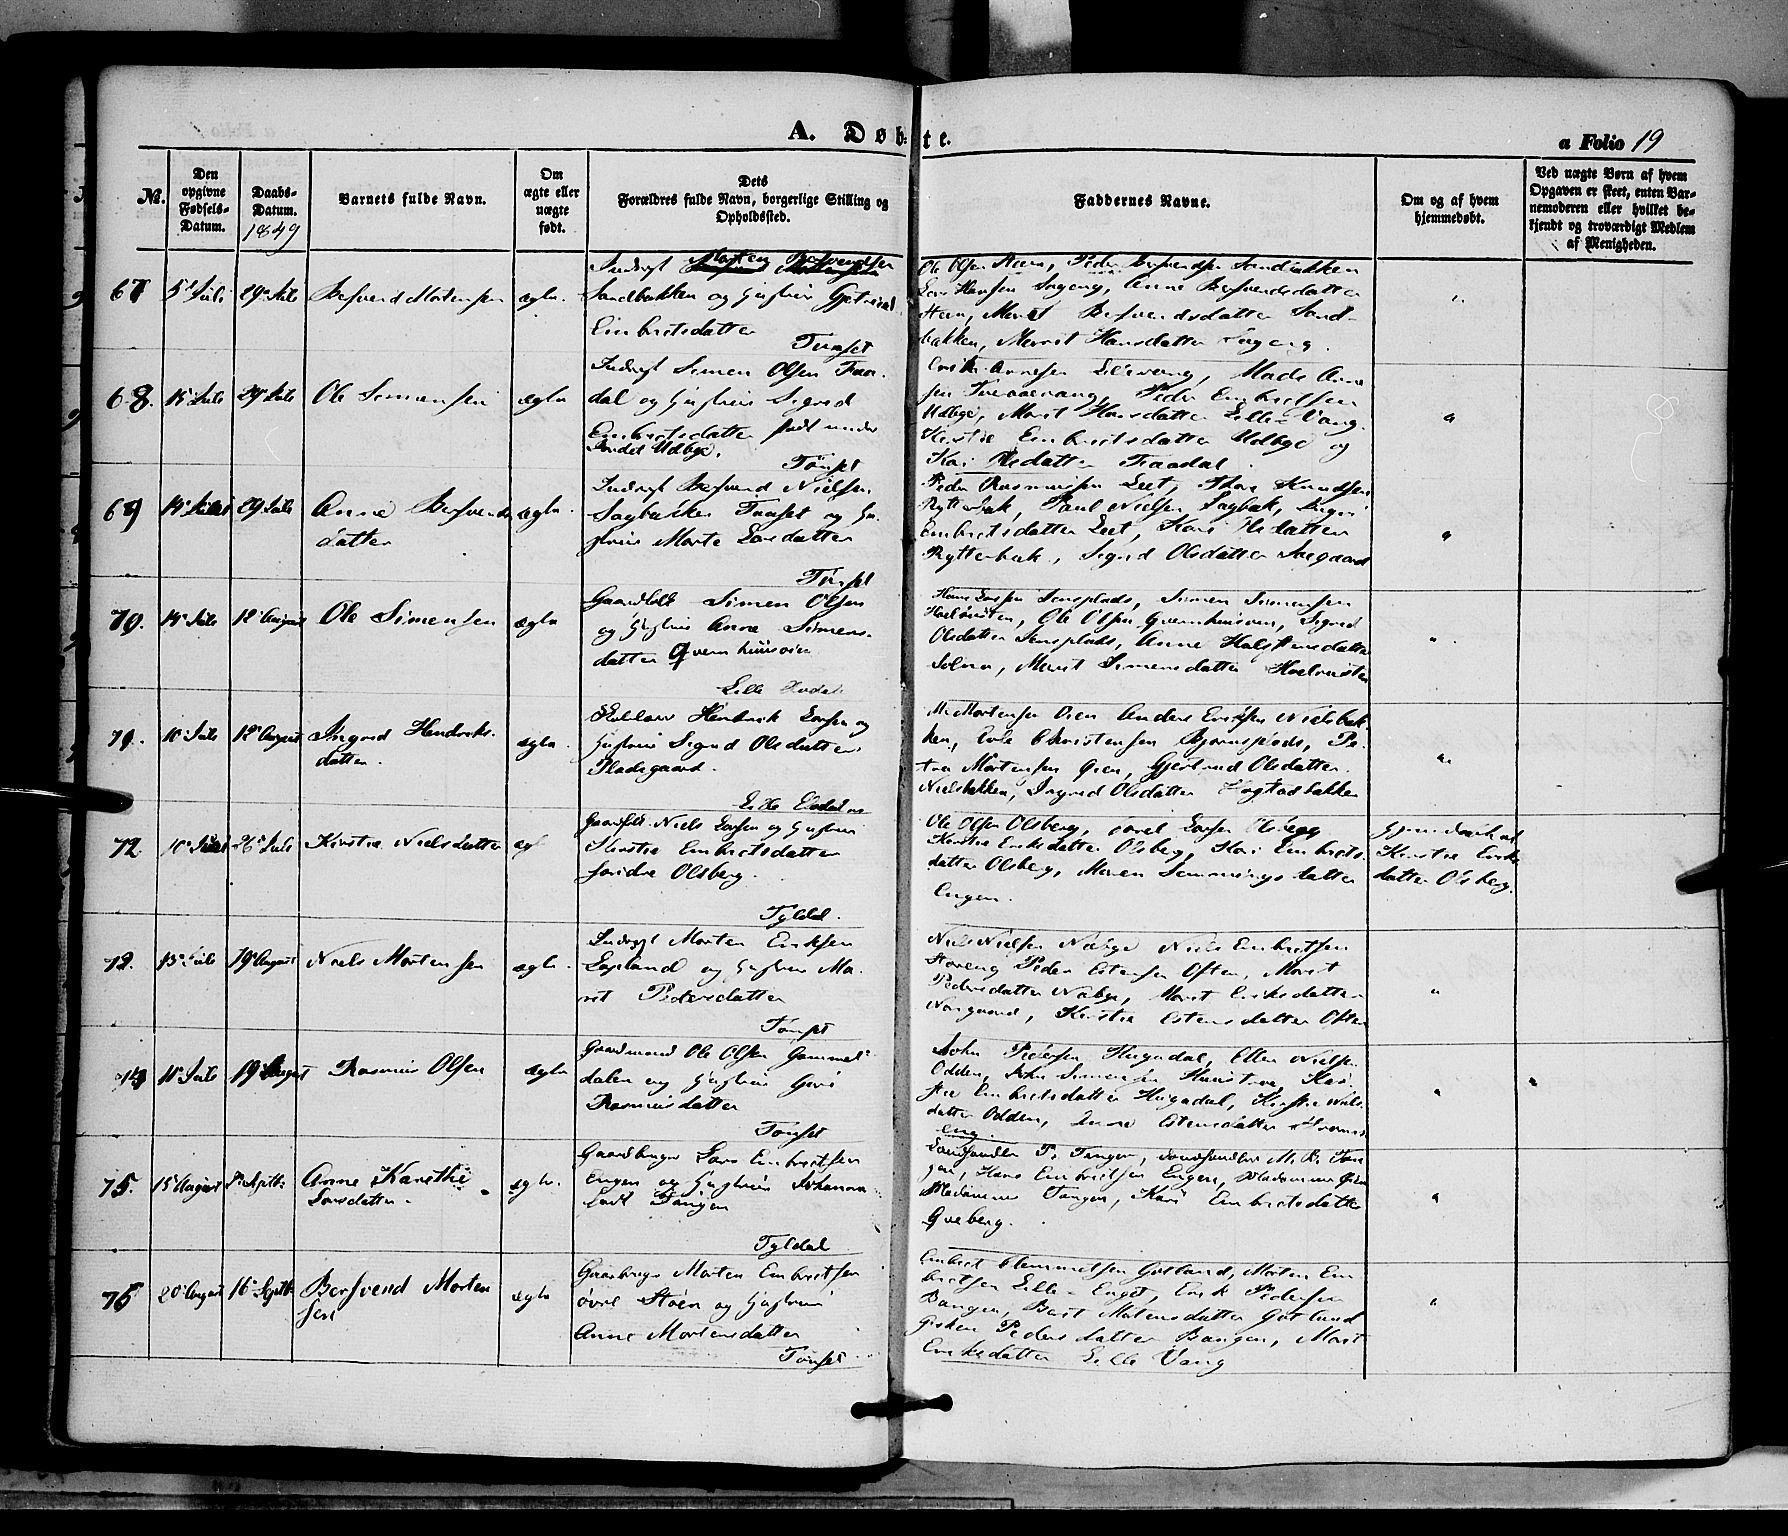 A. Døbte.
a Folio 19
No.
Den opgivne Fødsels-Datum.
Daabs-Datum. 1849
Barnets fulde Navn.
Om ægte eller uægte født.
Dets Forældres fulde Navn, borgerlige Stilling og Opholdssted.
Faddernes Navne.
Om og af hvem hjemmedøbt.
Ved uægte Børn af hvem Opgaven er skeet, enten Barnemoderen eller hvilket bekjendt og troværdigt Medlem af Menigheden.
67 5 Juli 29 Juli Bersvend Mortensen ægte.
Morten Bersvendsen
Sandbakken og Hustrue
Embretsdatter
Tønset
Ole Olsen Steen, Peder Bersvendsen Sandbakken
Lars Hansen Sageng, Anne Bersvendsdatter
Steen, Marit Bersvendsdatter Sand-
bakken, Marit Hansdatter Sageng.
68. 15 Juli 29 Juli Ole Simensen ægte
Simen Olsen Faa-
dal og Hustrue Sigrid
Embretsdatter født under
Udbye.
Tønset
Erik Arnesen Lillevang, Mads Arne-
sen, Peder Embretsen
Udbye, Marit Hansdatter Lille Vang.
Kirstie Embretsdatter Udbye og
Kari Olsdatter Faadal.
69 14 Juli 29 Juli Anne Bersvends
datter ægte.
Bersvend Nielsen
Sagbakken Tønset og Hu-
strue Marte Larsdatter
Tønset
Peder Rasmussen Leet, Thore Knudsen
Rytterbak, Paul Nielsen Sagbak,
Embretsdatter Leet, Kari Olsdatter
Rytterbak, Sigrid Olsdatter
70. 14 Juli 12 August Ole Simensen ægte
Simen Olsen
og Hustrue Anne Simens-
datter Qvernhuusvien
Lille Elvdal
Hans Larsen Jensplads, Simen Simensen
Ole Olsen Qvernhuusvien, Sigrid
Olsdatter Jensplads, Anne Halstensdatter
Marit Simensdatter
71. 10 Juli 12 August Ingrid Hendriks-
datter. ægte.
Hendrik Larsen og
Hustrue Sigrid Olsdatter
Pladsgaard.
Lille Elvdal
M. Mortensen Øien Anders Eriksen Nielsbak-
ken, Christensen Bjørnsplads, Pe-
tra Mortensen Øien, Gjertrud Olsdatter
Nielsbakken, Ingrid Olsdatter Hogstadbakken
72 10 Juli 26 Juli Kirstie Nielsdatter
Niels Larsen og Hustrue
Kirstie Embretsdatter
søndre Olsberg.
Tyldal.
Ole Olsen Olsberg, Larsen Olsberg
Kirstie Eriksdatter Olsberg, Kari Embrets-
datter Olsberg, Maren Semmingsdatter
Engen.
Hjemmedøbt af
Kirstie Eriks-
datter Olsberg.
13 Juli 19 August Niels Mortensen ægte.
Morten Eriksen
Lapland og Hustrue Ma-
rit Pedersdatter
Tønset
Niels Nielsen Nabye Niels Embretsen
Storeng Peder Estensen Often, Marit
Pedersdatter Nabye, Marit Eriksdatter
Kirstie Estensdatter Often
18 Juli 19 August Rasmus Olsen ægte
Gaardmand Ole Olsen Gammel-
dalen og Hustrue Guri
Rasmusdatter
Tønset
John Pedersen Hugudal, Ellen Nielsen
Odden, John Simensen
Embretsdatter Hugudal, Kirstie Niels-
datter Odden, Anne Estensdatter
eng.
75. 15 August Septb. Anne Karethie
Larsdatter. ægte.
Gaardbruger Lars Embretsen
Engen og Hustrue Johanna
Tangen
Tyldal
Landhandler P. Tangen, Landhandler M. R. Tan-
gen, Hans Embretsen Engen, Madamme Øien
Madamme Tangen, Kari Embretsdatter
Qveberg.
76 20 August 16 Septb. Bersvend Morten
sen ægte
Gaardbruger Morten Embretsen
øvre Støen og Hustrue
Anne Mortensdatter
Tønset
Embret Clemmetsen Gotland, Morten Em-
bretsen Lille-Enget, Erik Pedersen
Bangen, Mortensdatter Gotland
Pedersdatter Bangen, Marit
Eriksdatter Lille Vang